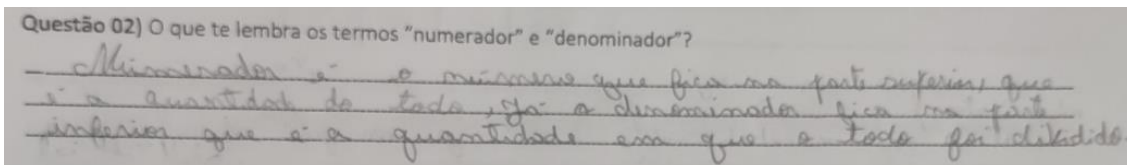 Questão 02) O que te lembra os termos "numerador" e "denominador"?
Numerador é o número que fica na parte superior, que
é a quantidade do todo, já o denominador fica na parte
inferior que é a quantidade em que o todo foi dividido